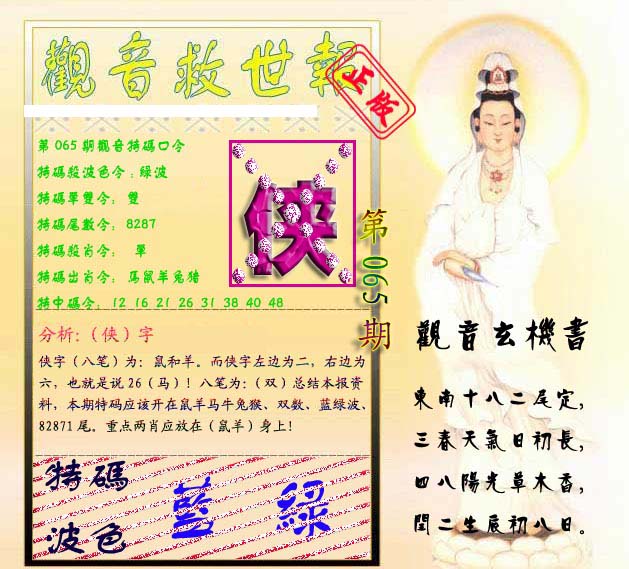 觀音救世報
正版
第065期觀音特碼口令
特碼殺波色令：綠波
特碼單雙令： 雙
特碼尾數令： 8287
特碼殺肖令： 單
特碼出肖令： 馬鼠羊兔猪
特中碼令： 12 16 21 26 31 38 40 48
侠
第065期
分析:（侠）字
侠字（八笔）为：鼠和羊。而侠字左边为二，右边为
六，也就是说26（马）！八笔为：（双）总结本报资
料，本期特码应该开在鼠羊马牛兔猴、双数、蓝绿波、
82871尾。重点两肖应放在（鼠羊）身上！
特碼
波色
藍 綠
觀音玄機書
東南十八二尾定，
三春天氣日初長，
四八陽光草木香，
閏二生辰初八日。